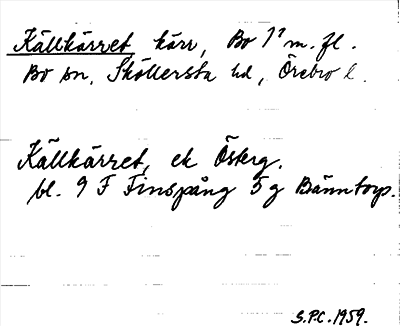 Källkärret kärr, Bo 1² m. fl.
Bo sn, Sköllersta hd, Örebro l.
Källkärret, ek Österg.
bl. 9 F Finspång 5 g Bänntorp.
S.P.C. 1959.